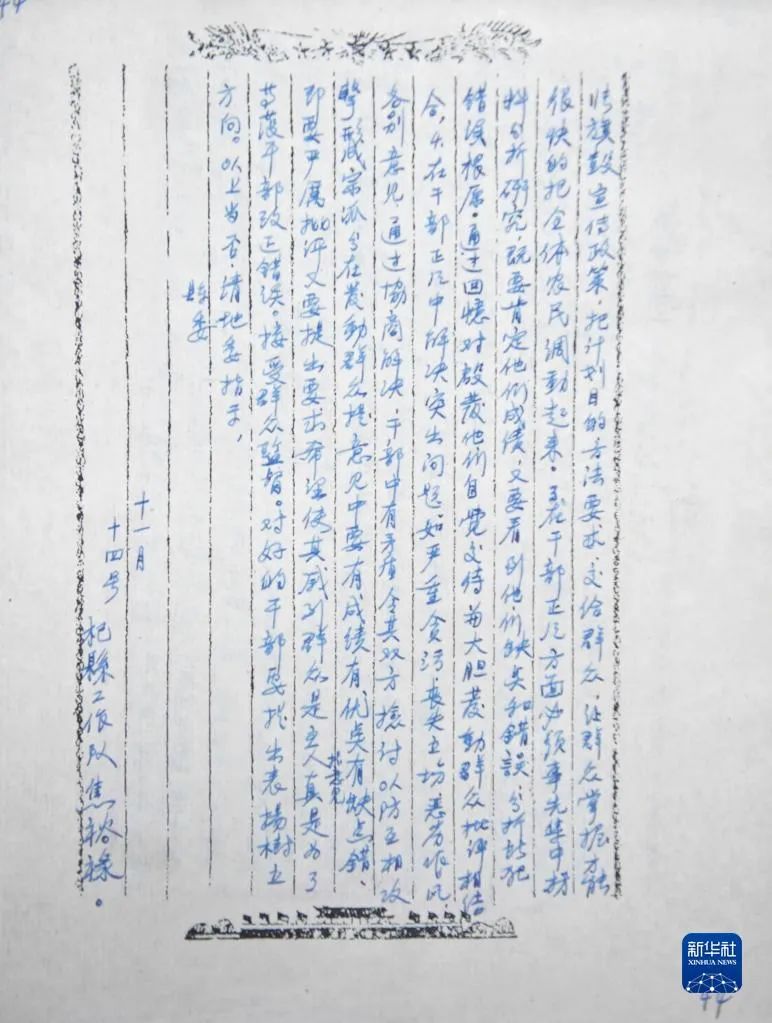 44
旗鼓宣传政策，把计划目的方法要求，交给群众，让群众掌握才能
很快的把全体农民调动起来。3在干部正风方面必须事先集中材
料分析研究既要肯定他们成绩，又要看到他们缺点和错误，分析其犯
错误根原。通过回憶对啟發他们自覺交待和大胆發動群众批评相结
合，4、在干部正风中解决突出问题如严重贪污，丧失立场，恶劣作风，
各别意见通过協商解决，干部中有矛盾令其双方檢讨以防互相攻
擊形成宗派，5在發動群众提意见中要有成绩有优点有缺点错，
即要严厉批评又要提出要求希望使其感到群众是主人提意见真是为了
干部改正错误。接受群众監督。对好的干部要提出表揚树立
方向。以上当否，请地委指示，
縣委
十一月
十四号 杞縣工作队焦裕禄。
新华社
XINHUA NEWS
44